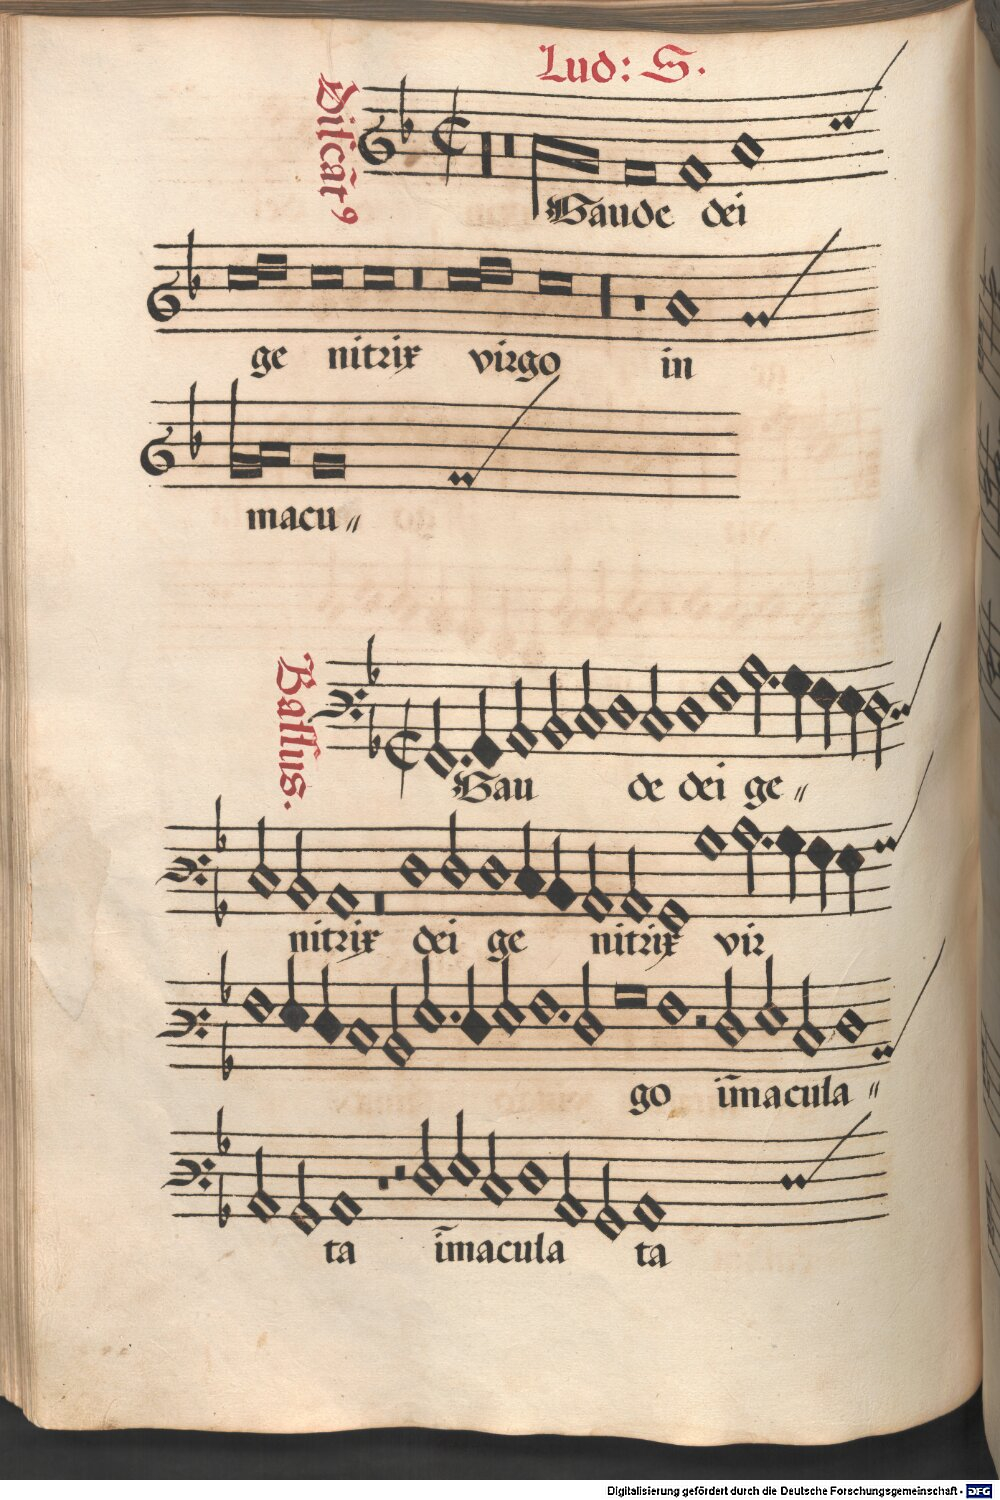 Lud: S.
Discāt⁹
Gaude dei
ge nitrix virgo in
macu〃
Bassus.
Gau de dei ge〃
nitrix dei ge nitrix vir
go im̄acula〃
ta im̄acula ta
Digitalisierung gefördert durch die Deutsche Forschungsgemeinschaft - DFG